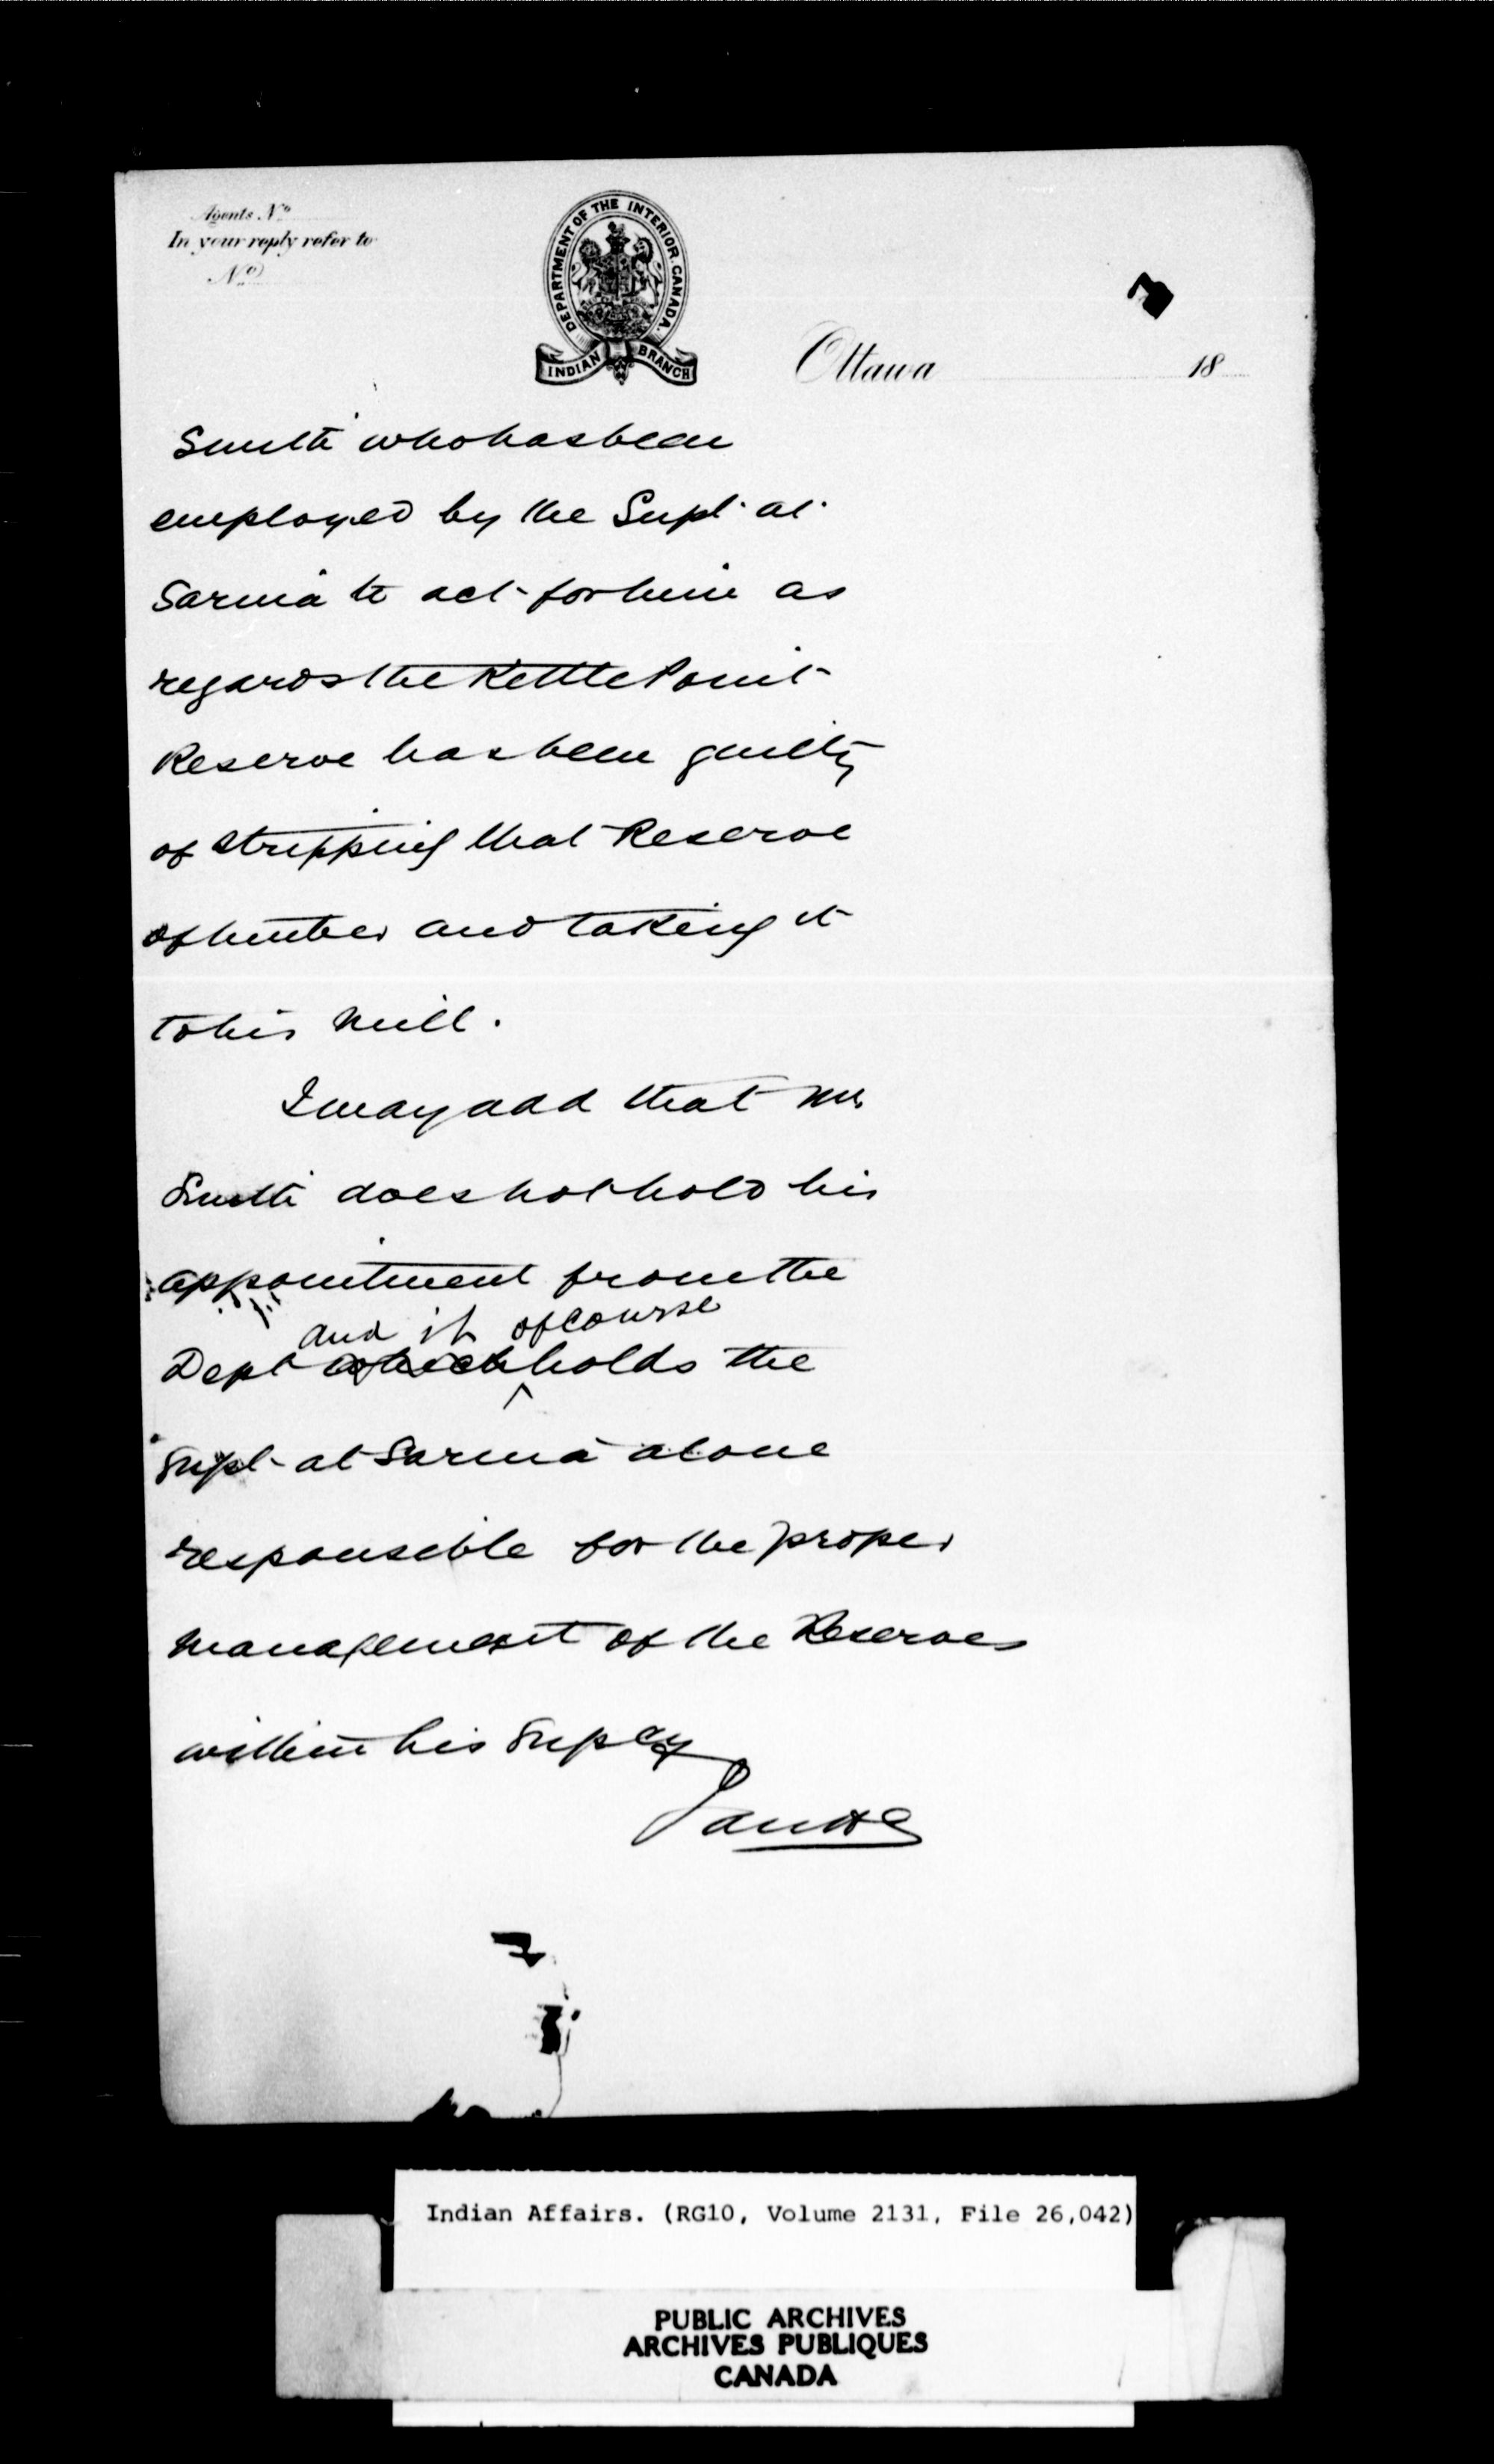 Agents No
In your reply refer to
No
DEPARTMENT OF THE INTERIOR. CANADA.
INDIAN BRANCH
Ottawa 18
Smith who has been
employed by the Supt. at
Sarnia to act for him as
regards the Kettle Point
Reserve has been guilty
of stripping that Reserve
of timber and taking it
to his mill.
I may add that Mr
Smith does not hold his
appointment from the
and it of course
Dept which holds the
Supt at Sarnia alone
responsible for the proper
management of the Reserves
within his Supcy
Indian Affairs. (RG10, Volume 2131, File 26,042)
PUBLIC ARCHIVES
ARCHIVES PUBLIQUES
CANADA